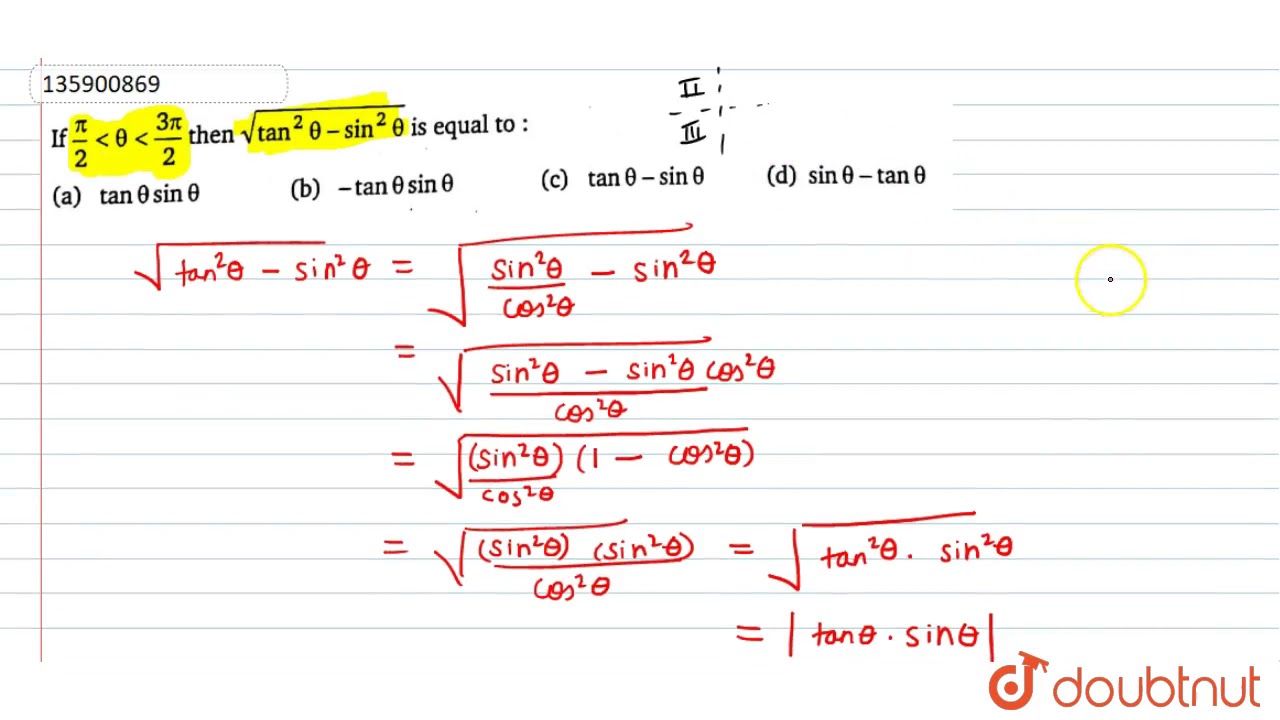 135900869
If π/2 < θ < 3π/2 then √(tan² θ – sin² θ) is equal to :
(a) tan θ sin θ (b) – tan θ sin θ (c) tan θ – sin θ (d) sin θ – tan θ
II
III
√(tan²θ – sin²θ) = √(sin²θ/cos²θ – sin²θ)
= √((sin²θ – sin²θ cos²θ)/cos²θ)
= √((sin²θ)/cos²θ (1 – cos²θ))
= √((sin²θ) (sin²θ)/cos²θ) = √(tan²θ . sin²θ)
= |tanθ . sinθ|
doubtnut